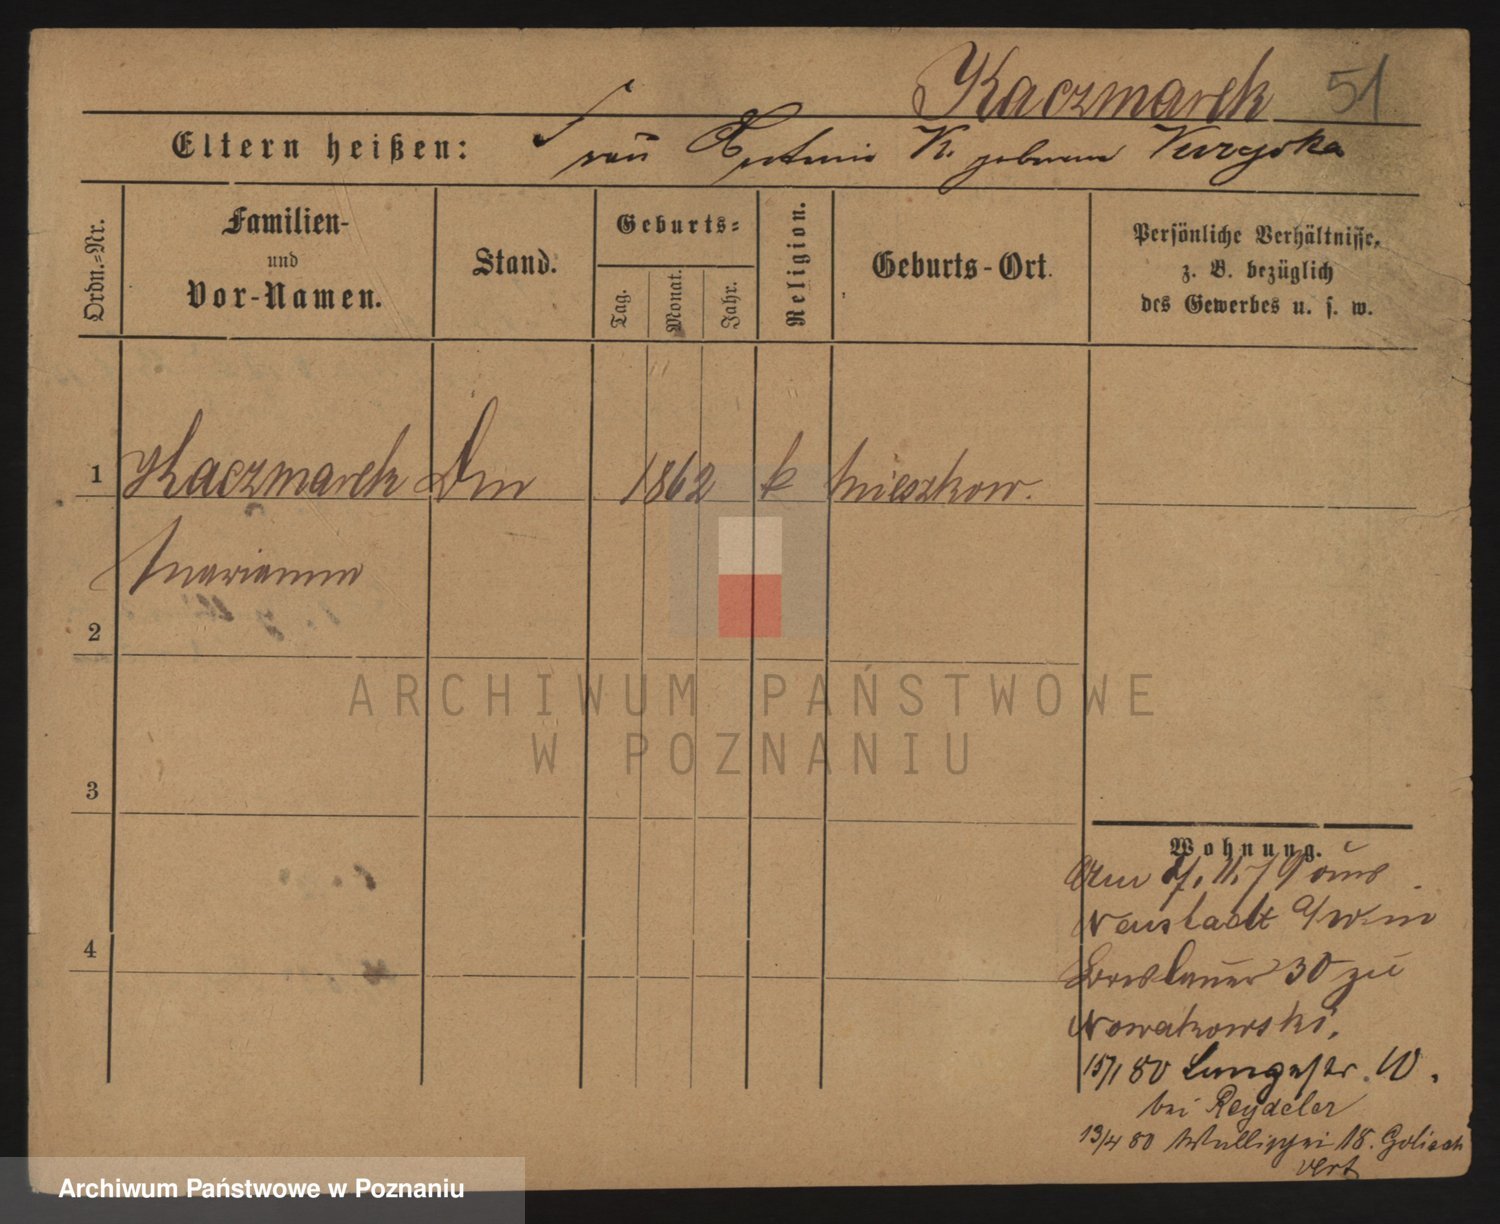 Kaczmarek 51
Eltern heißen: Frau Antonie K. geborene
Ordn.-Nr.
Familien-
und
Vor-Namen.
Stand.
Geburts-
Tag.
Monat.
Jahr.
Religion.
Geburts-Ort.
Persönliche Verhältnisse,
z. B. bezüglich
des Gewerbes u. s. w.
1 Kaczmarek 1862 k Mieszkow.
Marianna
2
3
4
Wohnung.
Am 11. 79 aus
Neustadt a/W in
Breslauer 30 zu
Nowakowski.
15/1 80 Langestr. 10.
bei Reydeler
13/4 80 Wallischei 18.
ARCHIWUM PAŃSTWOWE
W POZNANIU
Archiwum Państwowe w Poznaniu